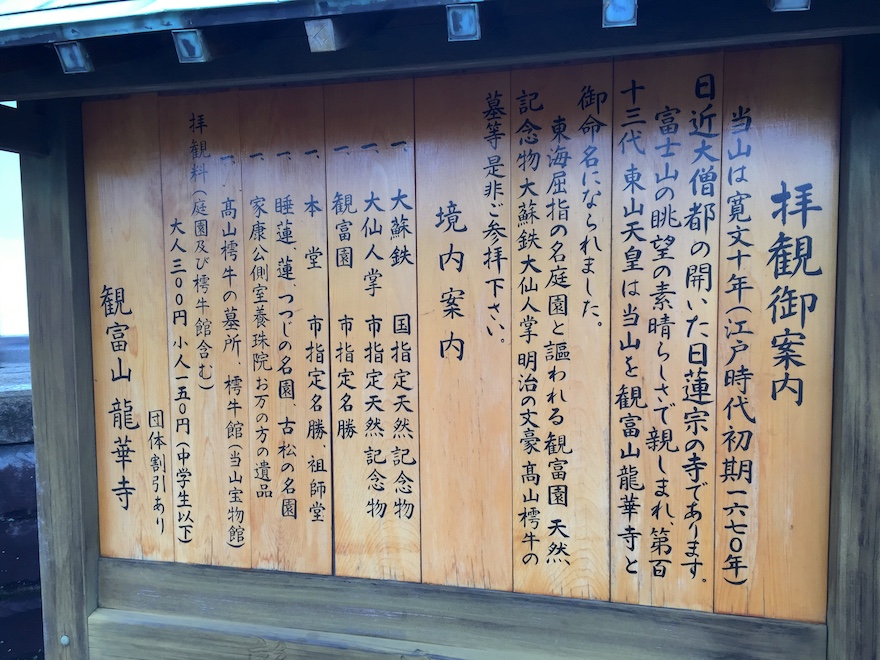 拝観御案内
当山は寛文十年(江戸時代初期一六七〇年)
日近大僧都の開いた日蓮宗の寺であります。
富士山の眺望の素晴らしさで親しまれ、第百
十三代 東山天皇は当山を観富山龍華寺と
御命名になられました。
東海屈指の名庭園と謳われる観富園 天然
記念物 大蘇鉄 大仙人掌 明治の文豪 高山樗牛の
墓等是非ご参拝下さい。
境内案内
一、大蘇鉄 国指定天然記念物
一、大仙人掌 市指定天然記念物
一、観富園 市指定名勝
一、本堂 市指定名勝、祖師堂
一、睡蓮、蓮、つつじの名園 古松の名園
一、家康公側室養珠院 お万の方の遺品
一、高山樗牛の墓所、樗牛館(当山宝物館)
拝観料(庭園及び樗牛館含む)
大人三〇〇円 小人一五〇円(中学生以下)
団体割引あり
観富山 龍華寺